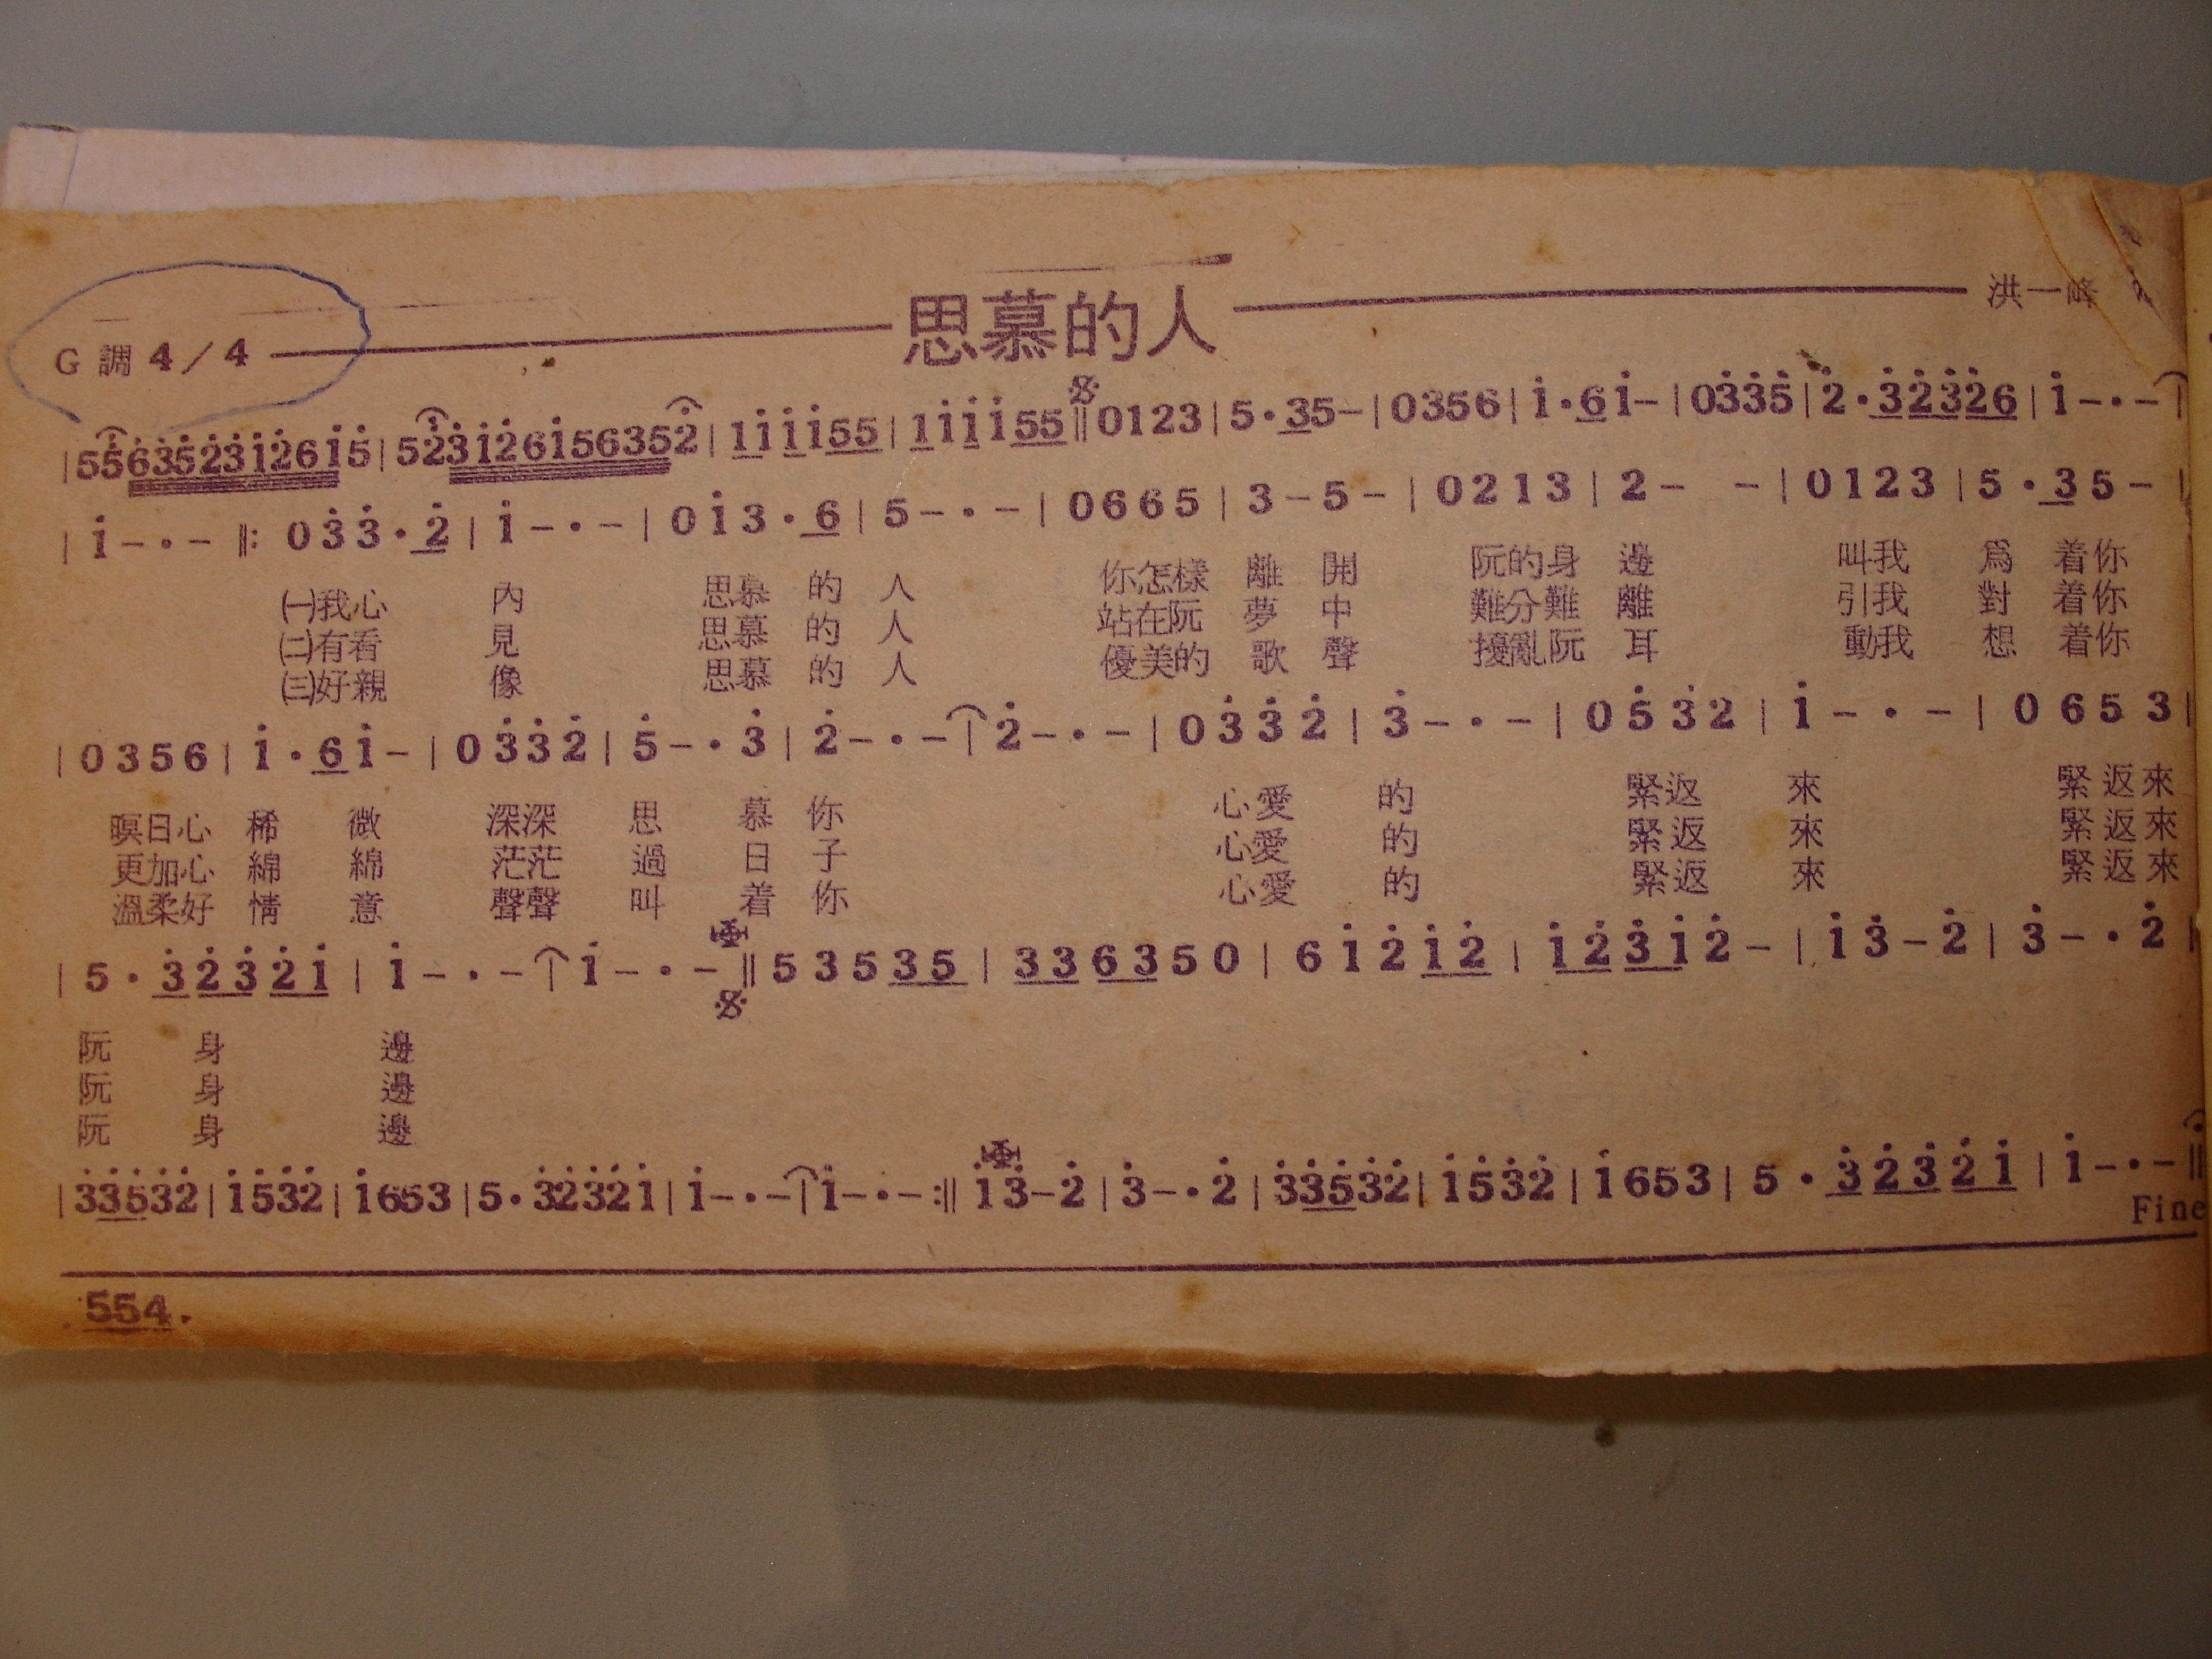 思慕的人
洪一峰
G 調 4／4
|55̇6̇3̇5̇2̇3̇1̇2̇61̇5̇|52̇3̇1̇2̇61̇56352̇|11̇1̇1̇55|11̇1̇1̇55‖0123|5·35-|0356|1̇·61̇-|03̇3̇5̇|2̇·3̇2̇3̇2̇6|1̇-·-|
|1̇-·-‖:03̇3̇·2̇|1̇-·-|01̇3·6|5-·-|0665|3-5-|0213|2- -|0123|5·35-|
㈠我心 內 思慕 的 人 你怎樣 離 開 阮的身 邊 叫我 爲 着你
㈡有看 見 思慕 的 人 站在阮 夢 中 難分難 離 引我 對 着你
㈢好親 像 思慕 的 人 優美的 歌 聲 擾亂阮 耳 動我 想 着你
|0356|1̇·61̇-|03̇3̇2̇|5̇-·3̇|2̇-·-|2̇-·-|03̇3̇2̇|3̇-·-|05̇3̇2|1̇-·-|0653|
暝日心 稀 微 深深 思 慕 你 心愛 的 緊返 來 緊返來
更加心 綿 綿 茫茫 過 日 子 心愛 的 緊返 來 緊返來
溫柔好 情 意 聲聲 叫 着 你 心愛 的 緊返 來 緊返來
|5·3̇2̇3̇2̇1̇|1̇-·-|1̇-·-‖53535|336350|61̇2̇1̇2̇|1̇2̇3̇1̇2̇-|1̇3̇-2̇|3̇-·2̇|
阮 身 邊
阮 身 邊
阮 身 邊
|3̇3̇5̇3̇2̇|1̇5̇3̇2̇|1̇653|5·3̇2̇3̇2̇1̇|1̇-·-|1̇-·-:‖1̇3̇-2̇|3̇-·2̇|3̇3̇5̇3̇2̇|1̇5̇3̇2̇|1̇653|5·3̇2̇3̇2̇1̇|1̇-·-‖
Fine
.554.